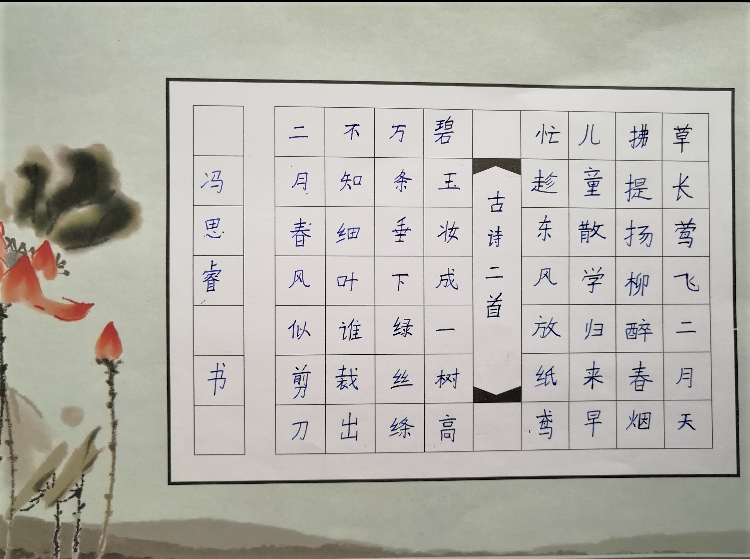 草长莺飞二月天
拂提扬柳醉春烟
儿童散学归来早
忙趁东风放纸鸢
古诗二首
碧玉妆成一树高
万条垂下绿丝绦
不知细叶谁裁出
二月春风似剪刀
冯思睿 书